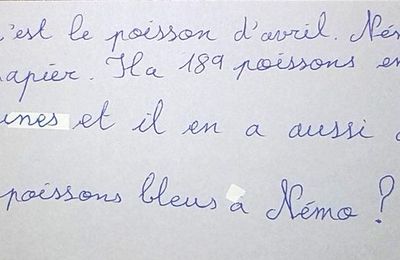 c'est le poisson d'avril. Ném
papier. Il a 189 poissons en
unes et il en a aussi
poissons bleus à Némo ?